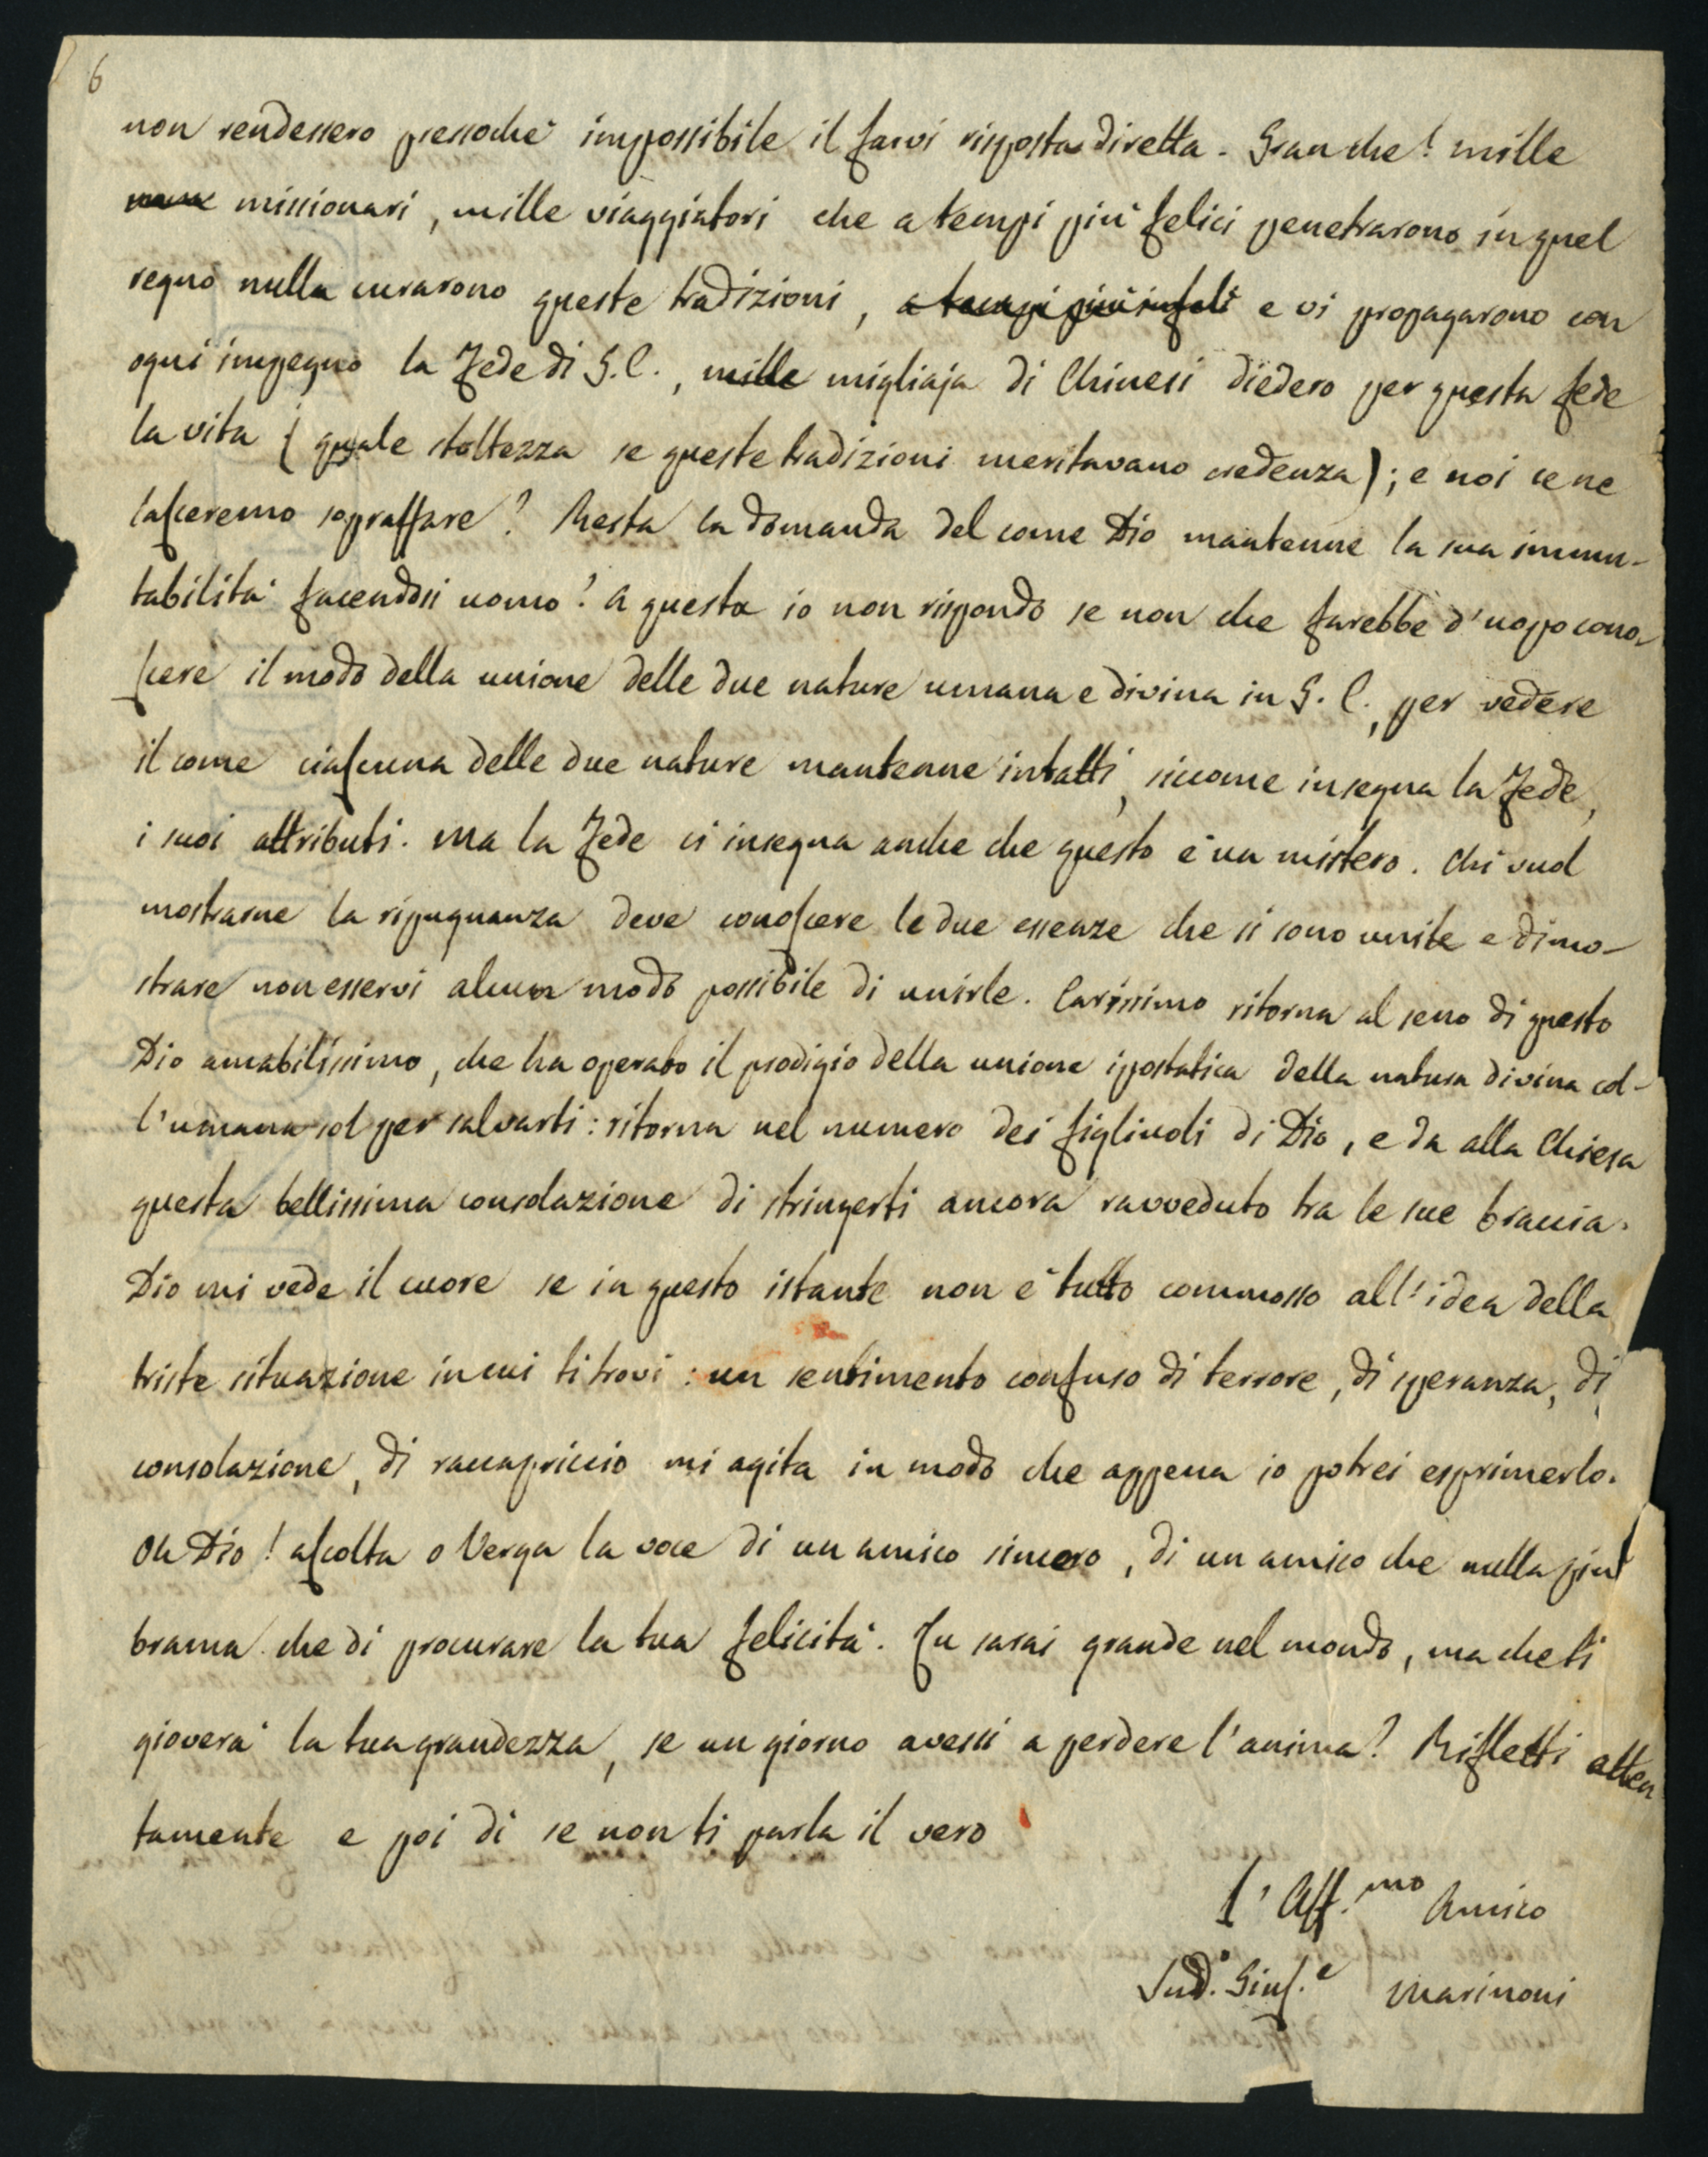 6
non rendessero pressochè impossibile il farvi risposta diretta. Gran che! mille
missionari, mille viaggiatori che a tempi più felici penetrarono in quel
regno nulla curarono queste tradizioni, a tempi più infeli e vi propagarono con
ogni impegno la Fede di G. C., mille migliaja di Chinesi diedero per questa fede
la vita (quale stoltezza se queste tradizioni meritavano credenza); e noi ce ne
lasceremo sopraffare? Resta la domanda del come Dio mantenne la sua immu-
tabilità facendosi uomo? A questa io non rispondo se non che farebbe d'uopo cono-
scere il modo della unione delle due nature umana e divina in G. C., per vedere
il come ciascuna delle due nature mantenne intatti, siccome insegna la Fede,
i suoi attributi. Ma la Fede ci insegna anche che questo è un mistero. Chi vuol
mostrarne la ripugnanza deve conoscere le due essenze che si sono unite e dimo-
strare non esservi alcun modo possibile di unirle. Carissimo ritorna al seno di questo
Dio amabilissimo, che ha operato il prodigio della unione ipostatica della natura divina col-
l'umana sol per salvarti: ritorna nel numero dei figliuoli di Dio, e da alla Chiesa
questa bellissima consolazione di stringerti ancora ravveduto tra le sue braccia.
Dio mi vede il cuore se in questo istante non è tutto commosso all'idea della
triste situazione in cui ti trovi: un sentimento confuso di terrore, di speranza, di
consolazione, di raccapriccio mi agita in modo che appena io potrei esprimerlo.
Oh Dio! ascolta o Verga la voce di un amico sincero, di un amico che nulla più
brama che di procurare la tua felicità. Tu sarai grande nel mondo, ma che ti
gioverà la tua grandezza, se un giorno avessi a perdere l'anima? Rifletti atten
tamente e poi di se non ti parla il vero
l'Aff.mo Amico
Sud.o Gius.e Marinoni